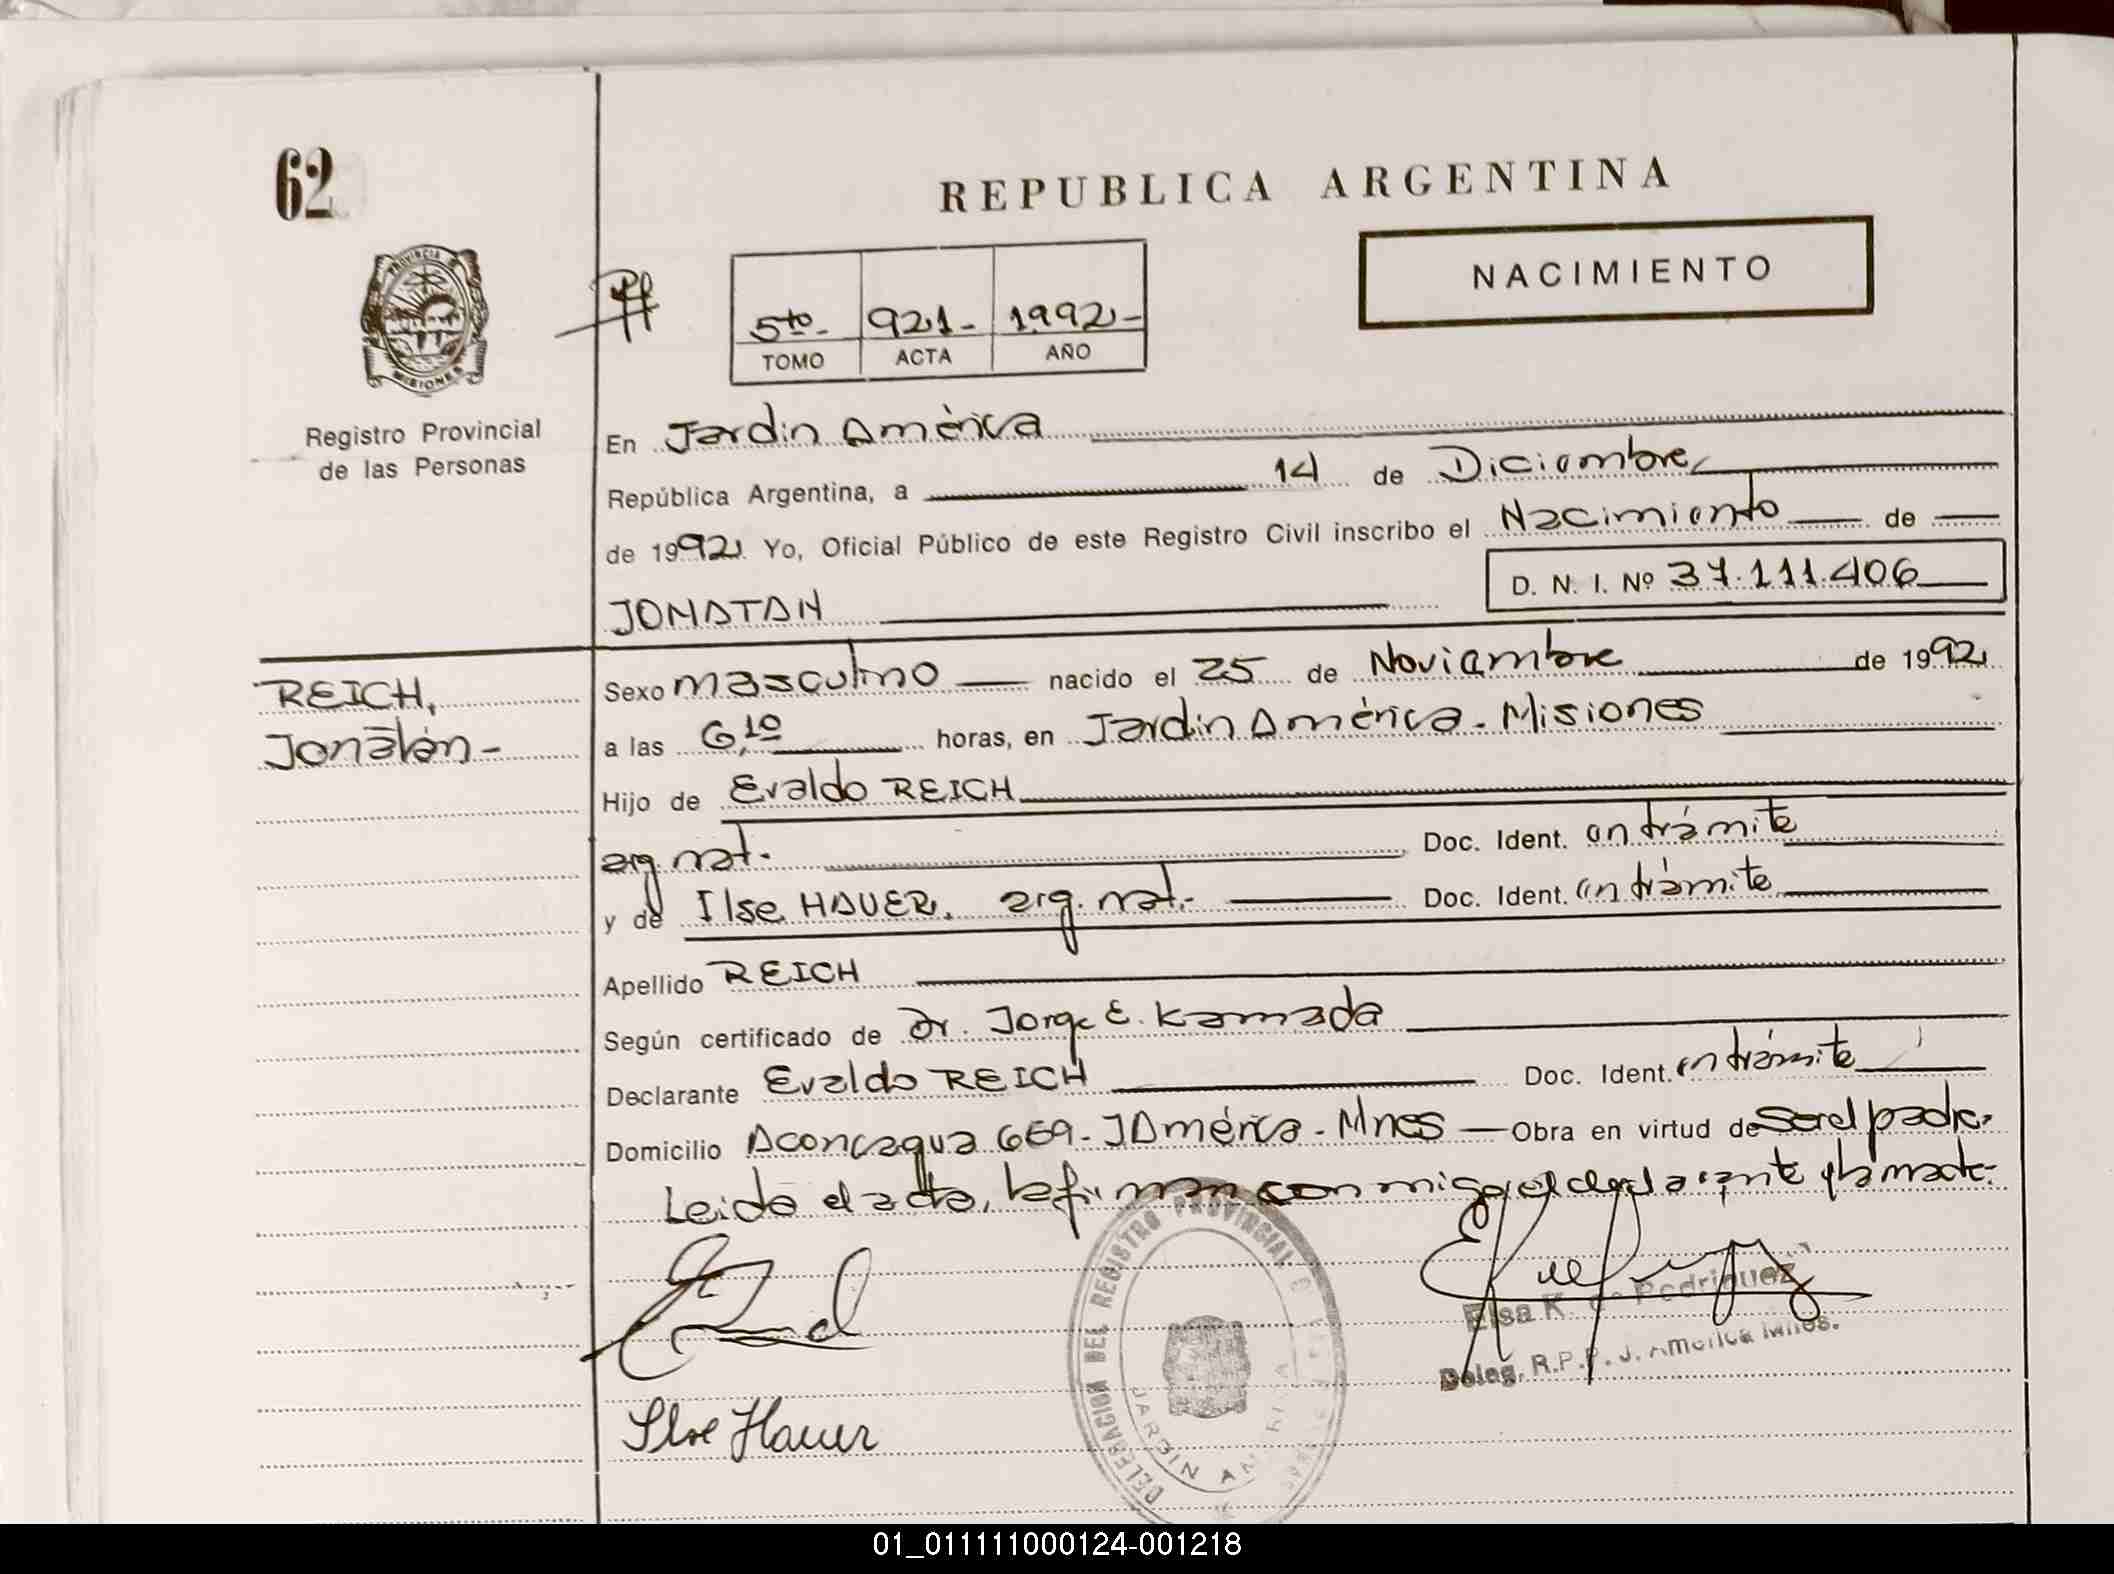 62
REPUBLICA ARGENTINA
NACIMIENTO
PROVINCIA DE
MISIONES
5to- 921- 1992-
TOMO ACTA AÑO
Registro Provincial
de las Personas
En Jardín América
República Argentina, a 14 de Diciembre
de 1992 Yo, Oficial Público de este Registro Civil inscribo el Nacimiento de
JONATAN D. N. I. Nº 37.111.406
REICH,
Jonatán-
Sexo masculino nacido el 25 de Noviembre de 1992
a las 6,10 horas, en Jardín América - Misiones
Hijo de Evaldo REICH
arg. nat. Doc. Ident. en trámite
y de Ilse HAUER, arg. nat.- Doc. Ident. en trámite
Apellido REICH
Según certificado de Dr. Jorge E. Kamada
Declarante Evaldo REICH Doc. Ident. en trámite
Domicilio Aconcagua 669- J América - Mnes Obra en virtud de ser el padre
Leida el acta, la firman conmigo el declarante y la madre.
DELEGACION DEL REGISTRO PROVINCIAL
JARDIN AMERICA
Elsa K. de Rodriguez
Deleg. R.P.P. J. America Mnes.
Ilse Hauer
01_011111000124-001218